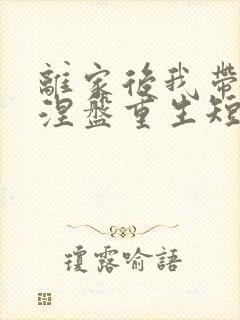 離家後我帶
涅盤重生短
瓊露喻語